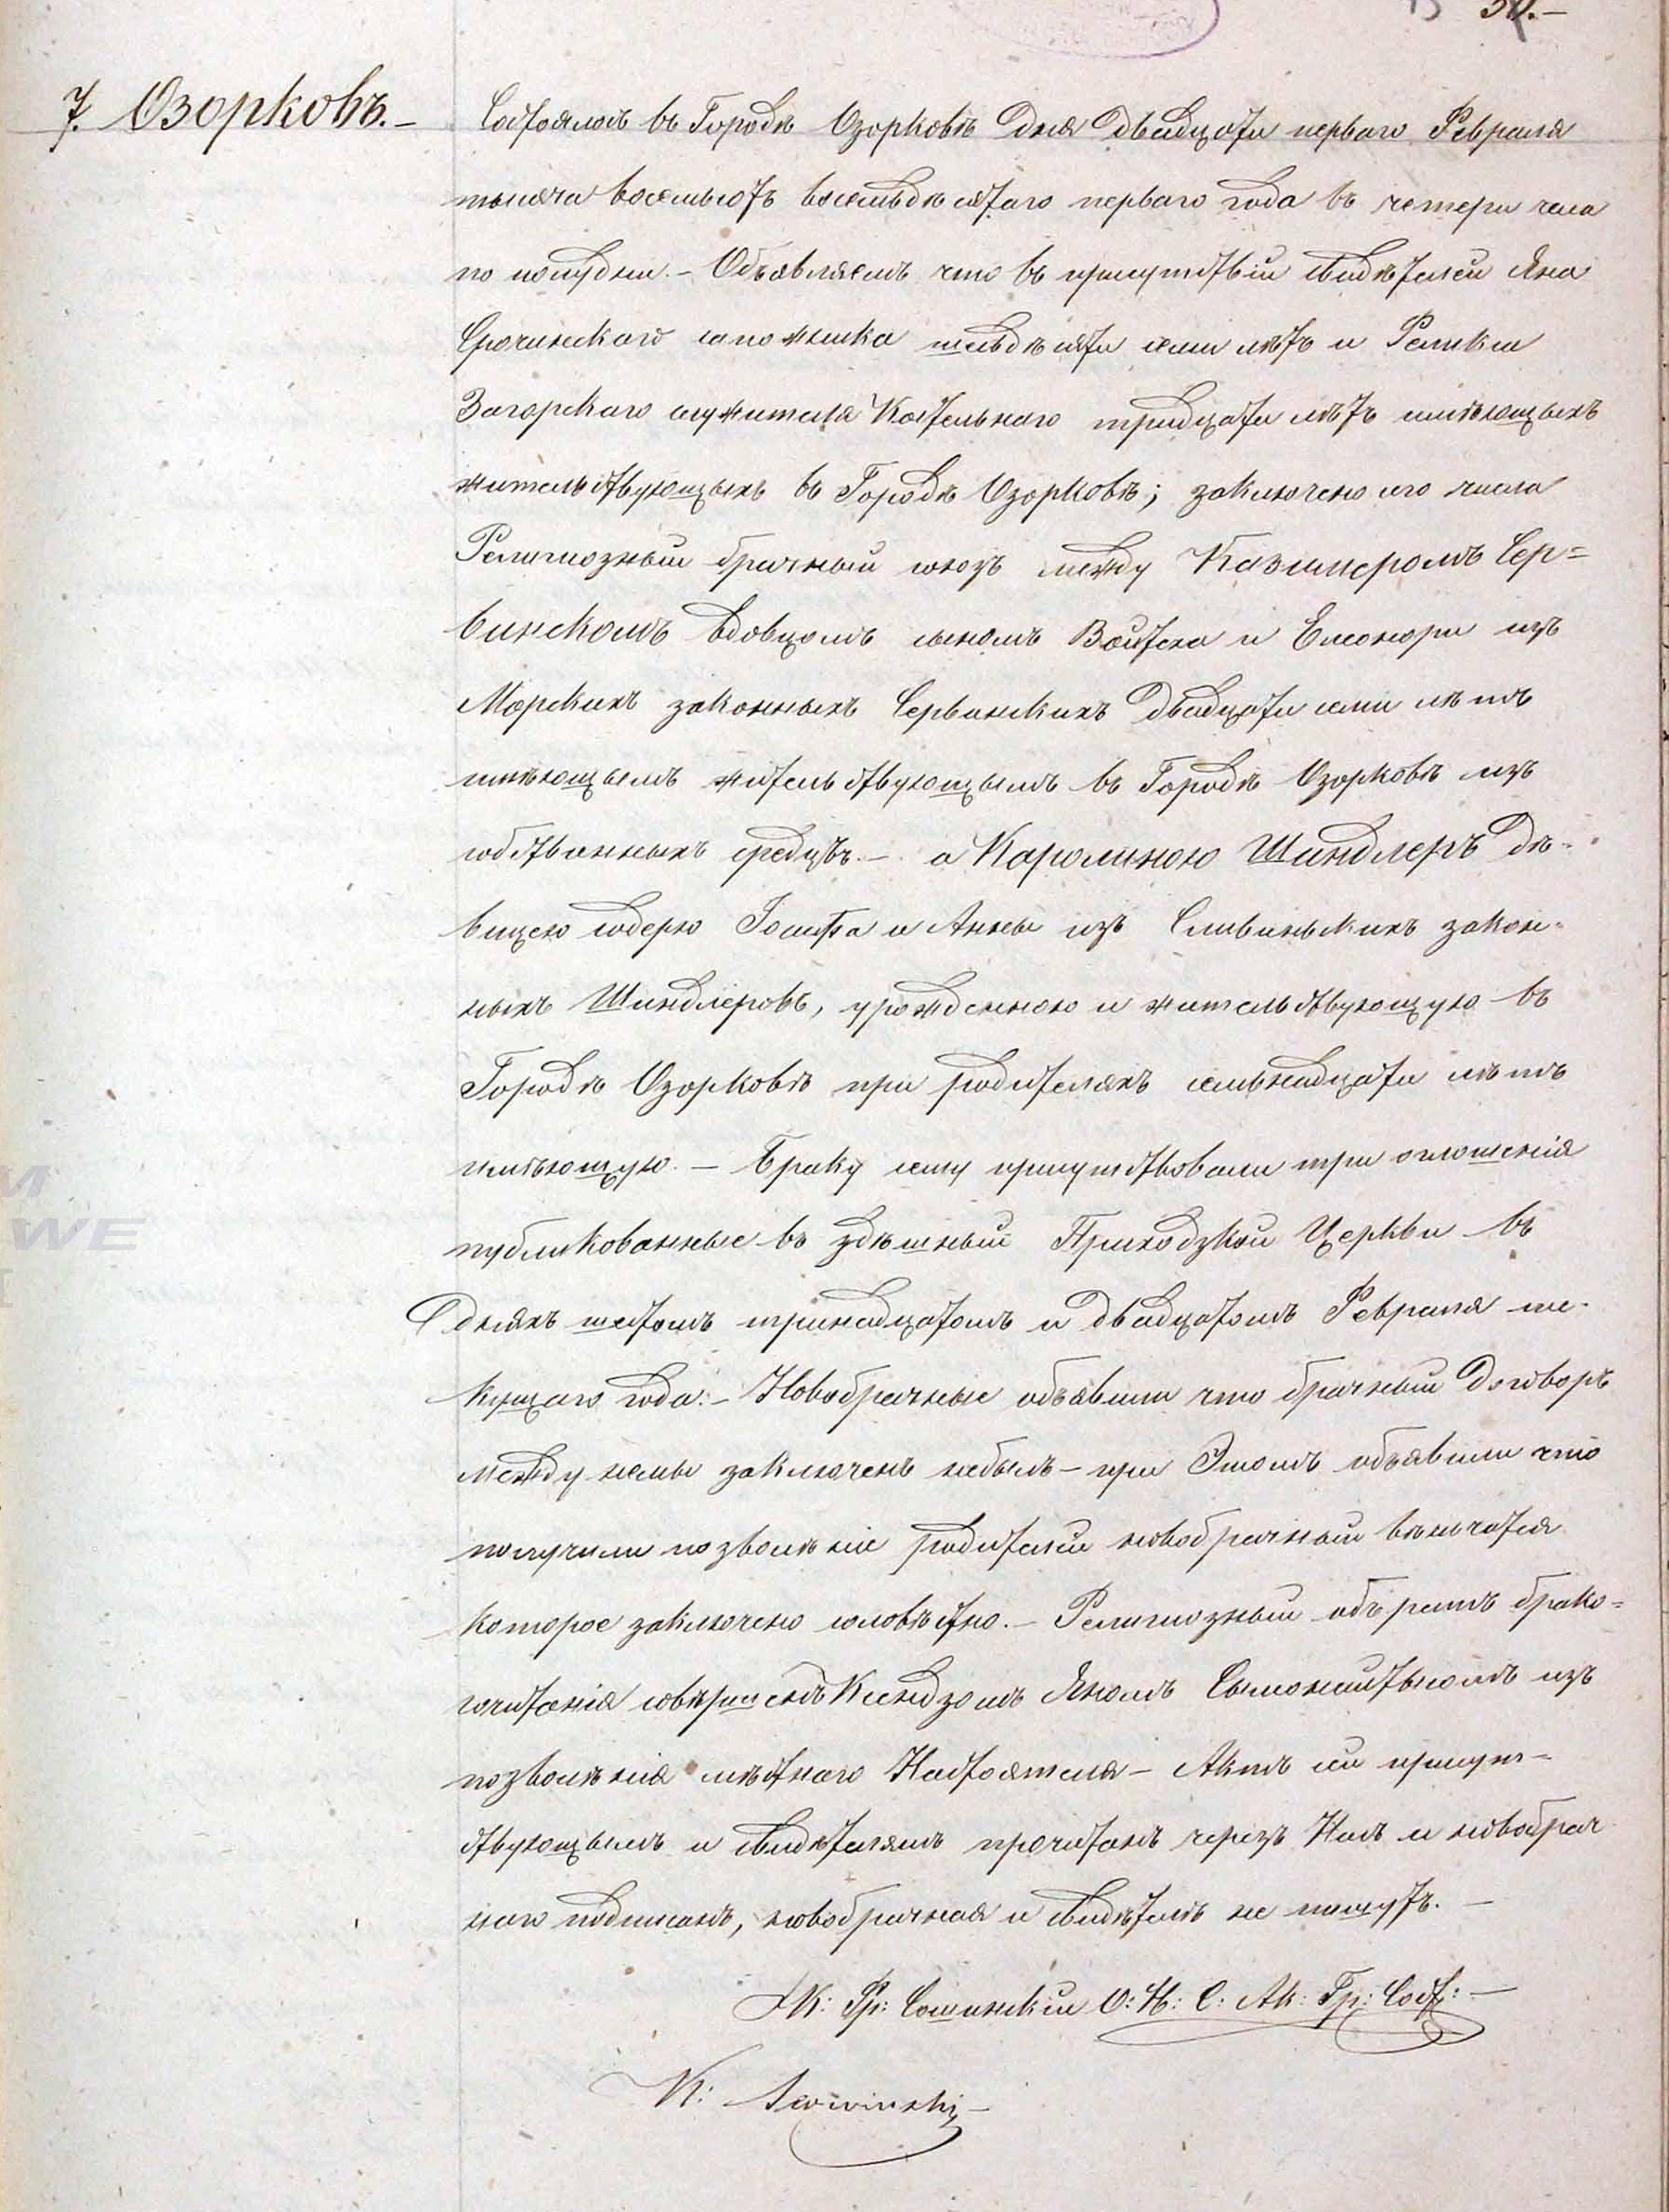 50.–
7. Озорковъ.–
Состоялось въ Городѣ Озорковѣ Дня Двадцати перваго Февраля
тысяча восемьсотъ восемьдѣсятаго перваго года въ четери часа
по полудни. – Объявляемъ что въ присутствіи свидѣтелей Яна
Срочинскаго сапожника шесьдѣсяти семи лѣтъ и Феликса
Загорскаго служителя Костельнаго тридцати лѣтъ имѣющыхъ
жительствующыхъ въ Городѣ Озорковѣ; заключено сего числа
Религиозный брачный союзъ между Казимеромъ Сер=
винскомъ вдовцомъ сыномъ Войтеха и Елеонори изъ
Морскихъ законныхъ Сервинскихъ Двадцати семи лѣтъ
имѣющымъ жительствующымъ въ Городѣ Озорковѣ изъ
собственныхъ средцвъ. – а Каролиною Шиндлеръ Дѣ-
вицею содерю Іосифа и Анны изъ Сливиньскихъ закон-
ныхъ Шиндлеровъ, урожденною и жительствующую въ
Городѣ Озорковѣ при родителяхъ семьнадцати лѣтъ
имѣющую. – Браку сему присутствовали три оглошенія
публикованные въ здѣшный Приходзкой Церкви въ
Дняхъ шестомъ тринадцатомъ и Двадцатомъ Февраля те-
кущаго года. – Новобрачные объявили что брачный Договоръ
между немы заключенъ небылъ – при Этомъ объявили что
получили позволѣніе родителей новобрачный вѣнчатся
которое заключено словѣстно. – Религиозный объредъ брако=
сочитанія совѣршенъ Ксендзомъ Яномъ Сымонайтысомъ изъ
позволѣнія мѣстнаго Настоятеля – Актъ сей присут-
ствующымъ и свидѣтелямъ прочитанъ черезъ Насъ и новобрач
наго подписанъ, новобрачная и свидѣтелѣ не пишутъ. –
К: Фр: Сошинскій О: Н: С: Ак: Гр: Сост: –
K: Serwinski –
M
WE
I